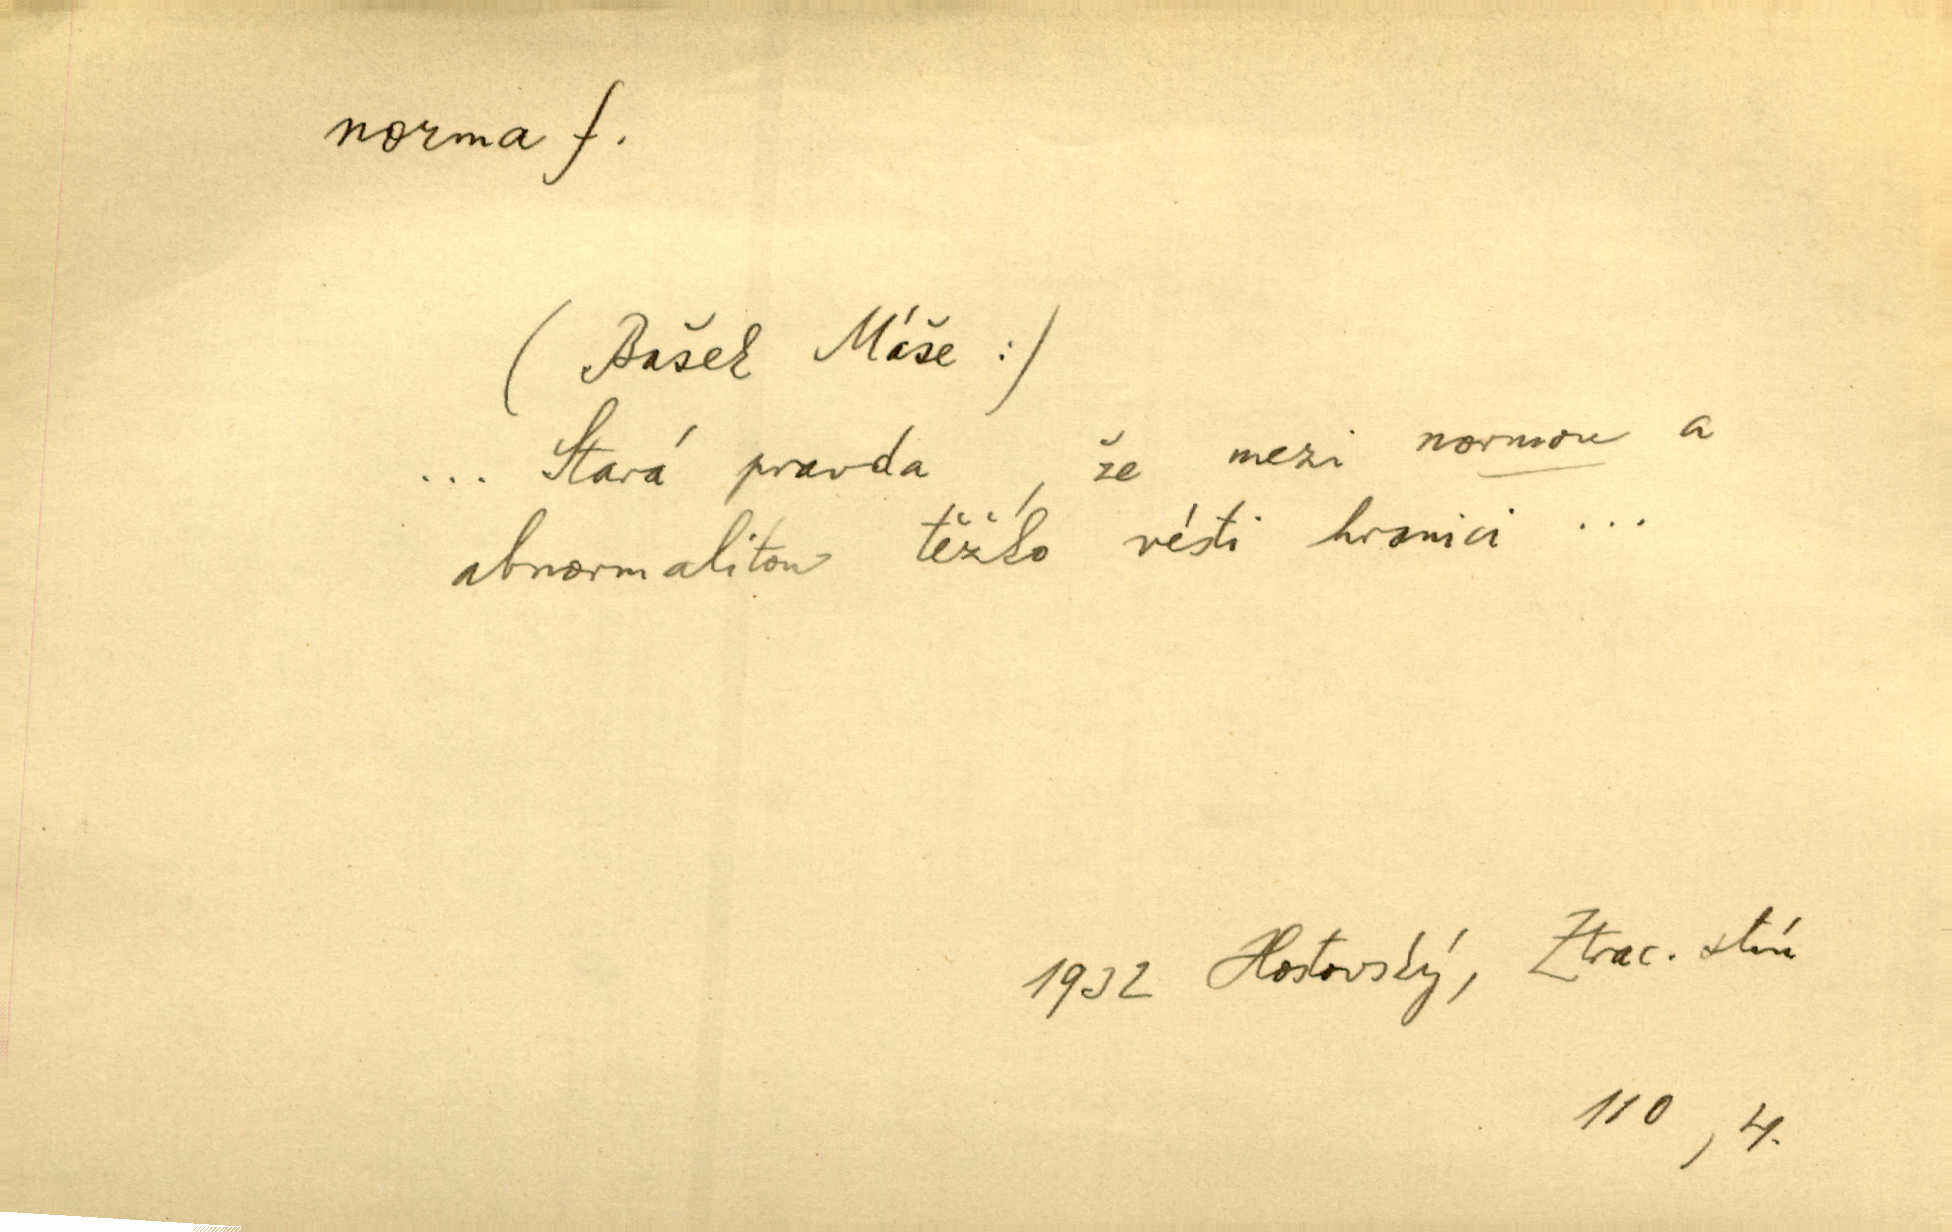 norma f.
(Bašek Máše :)
... Stará pravda, že mezi normou a
abnormalitou těžko vésti hranici ...
1932 Hostovský, Ztrac. stín
110, 4.